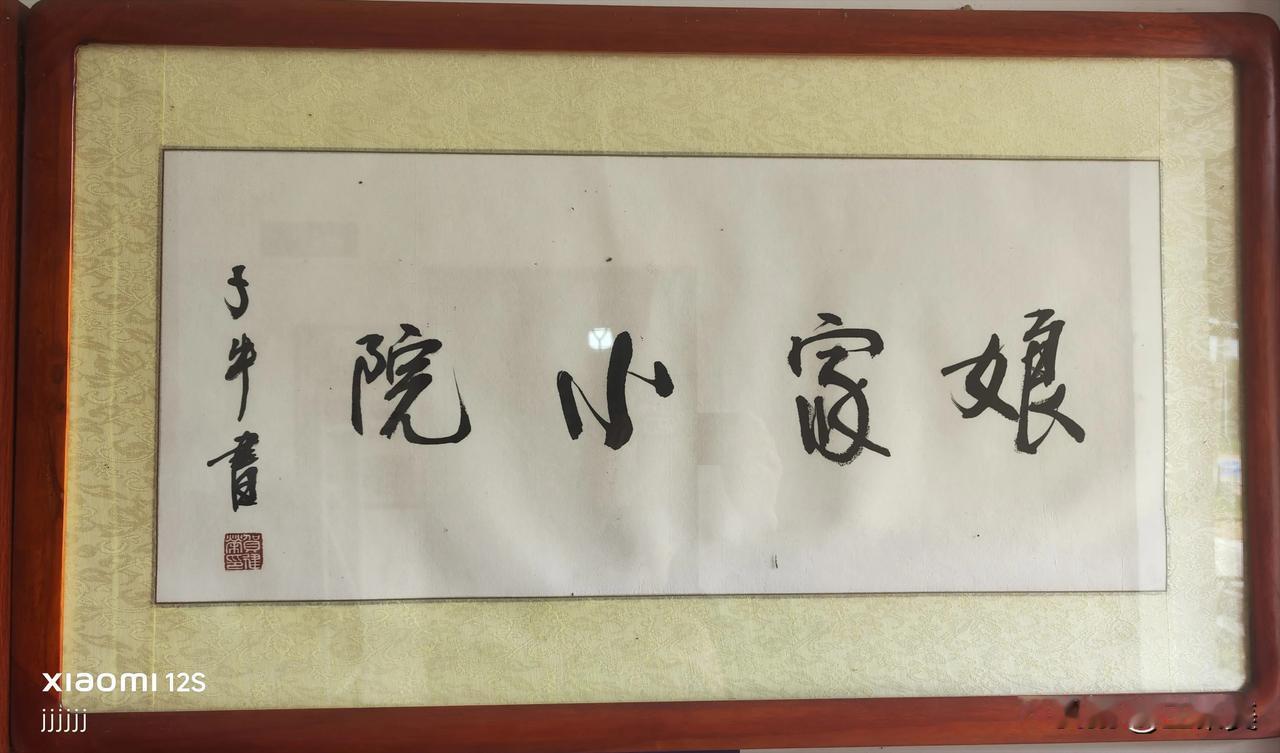 娘家小院
子牛書
賀建荣印
xiaomi 12S
jjjjjj